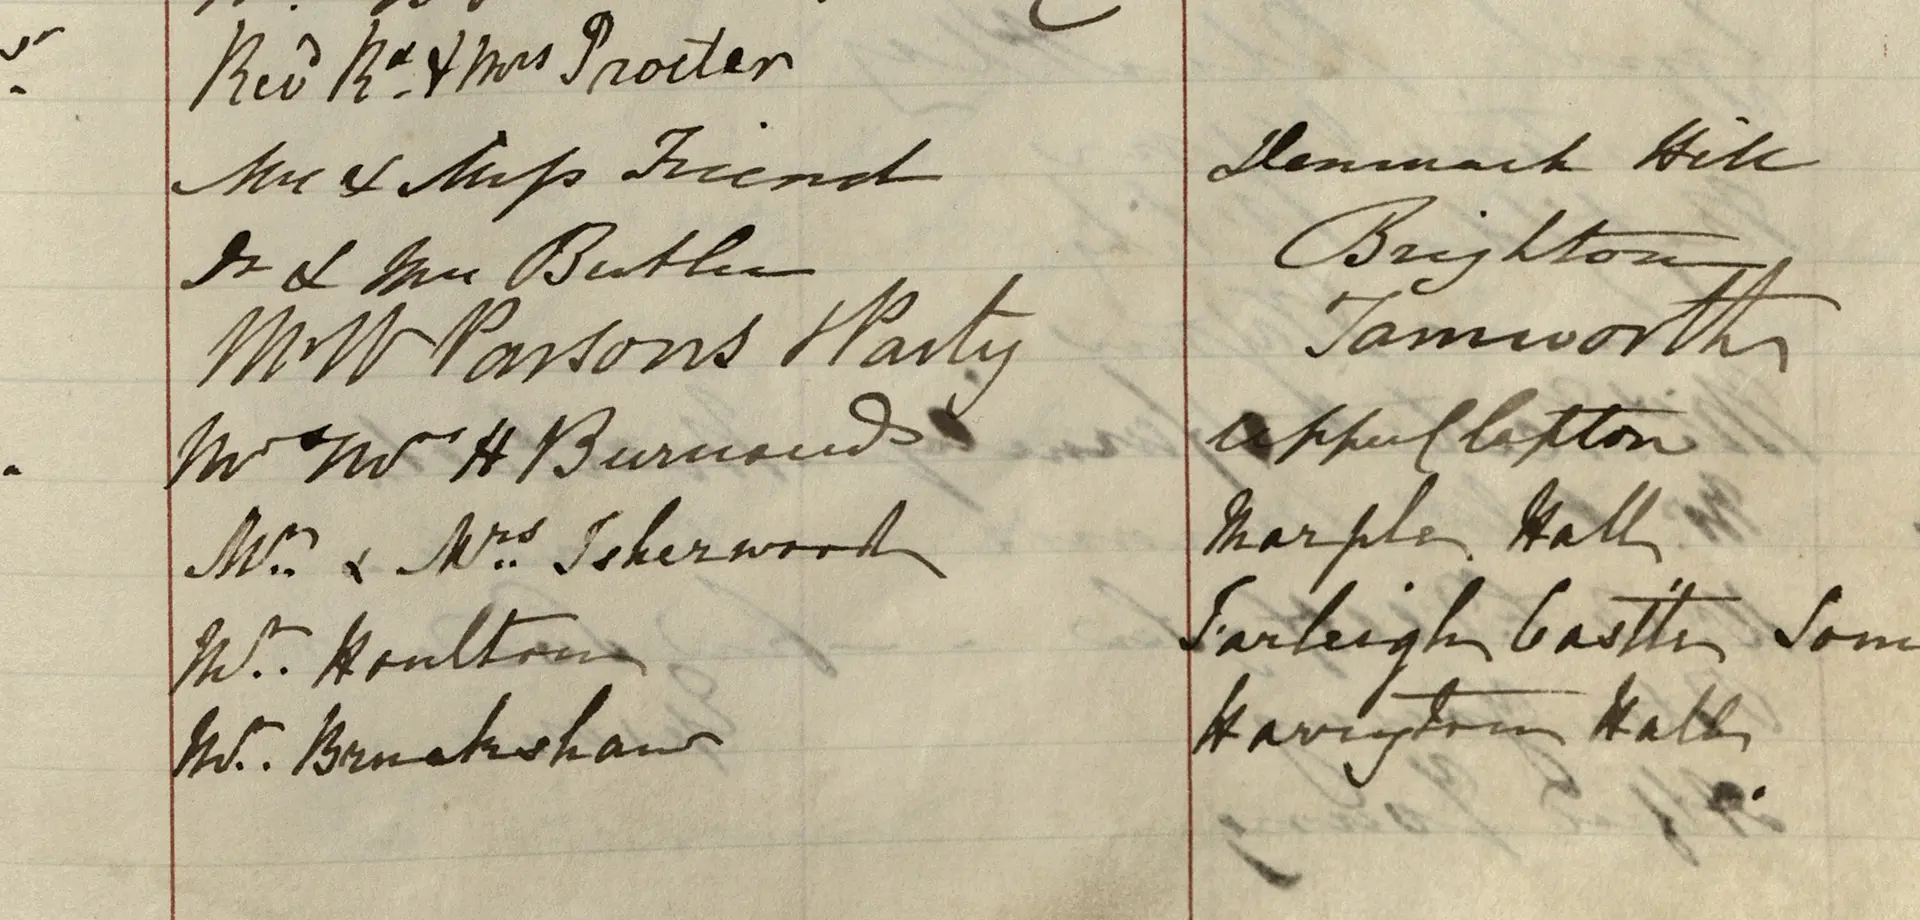 Revd Rd & Mrs Procter
Mrs & Miss Friend Denmark Hill
Dr & Mrs Butler Brighton
Mr W Parsons & Party Tamworth
Mr & Mrs H Burnand Upper Clapton
Mr. & Mrs. Isherwood Marple Hall
Mr. Houlton Farleigh Castle Som
Mr. Bruckshaw Harrington Hall